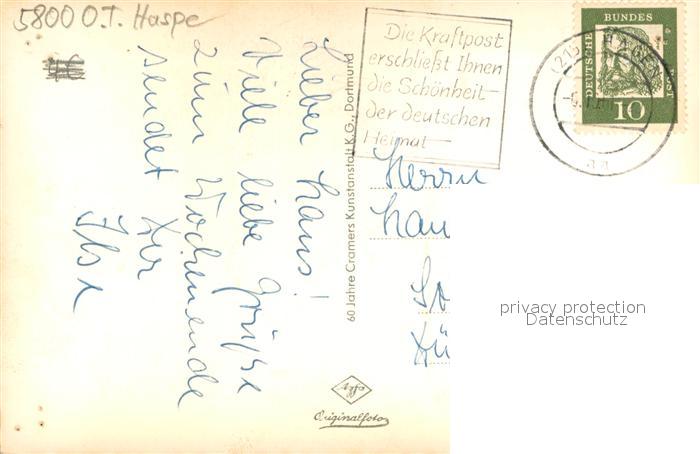 5800 O.T. Haspe
Lieber Hans!
Viele liebe Grüße
zum Wochenende
sendet Dir
Ilse
60 Jahre Cramers Kunstanstalt K.G., Dortmund
Die Kraftpost
erschließt Ihnen
die Schönheit
der deutschen
Heimat
DEUTSCHE BUNDESPOST
10
HAGEN
Herrn
Han
privacy protection
Datenschutz
Agfa
Originalfoto